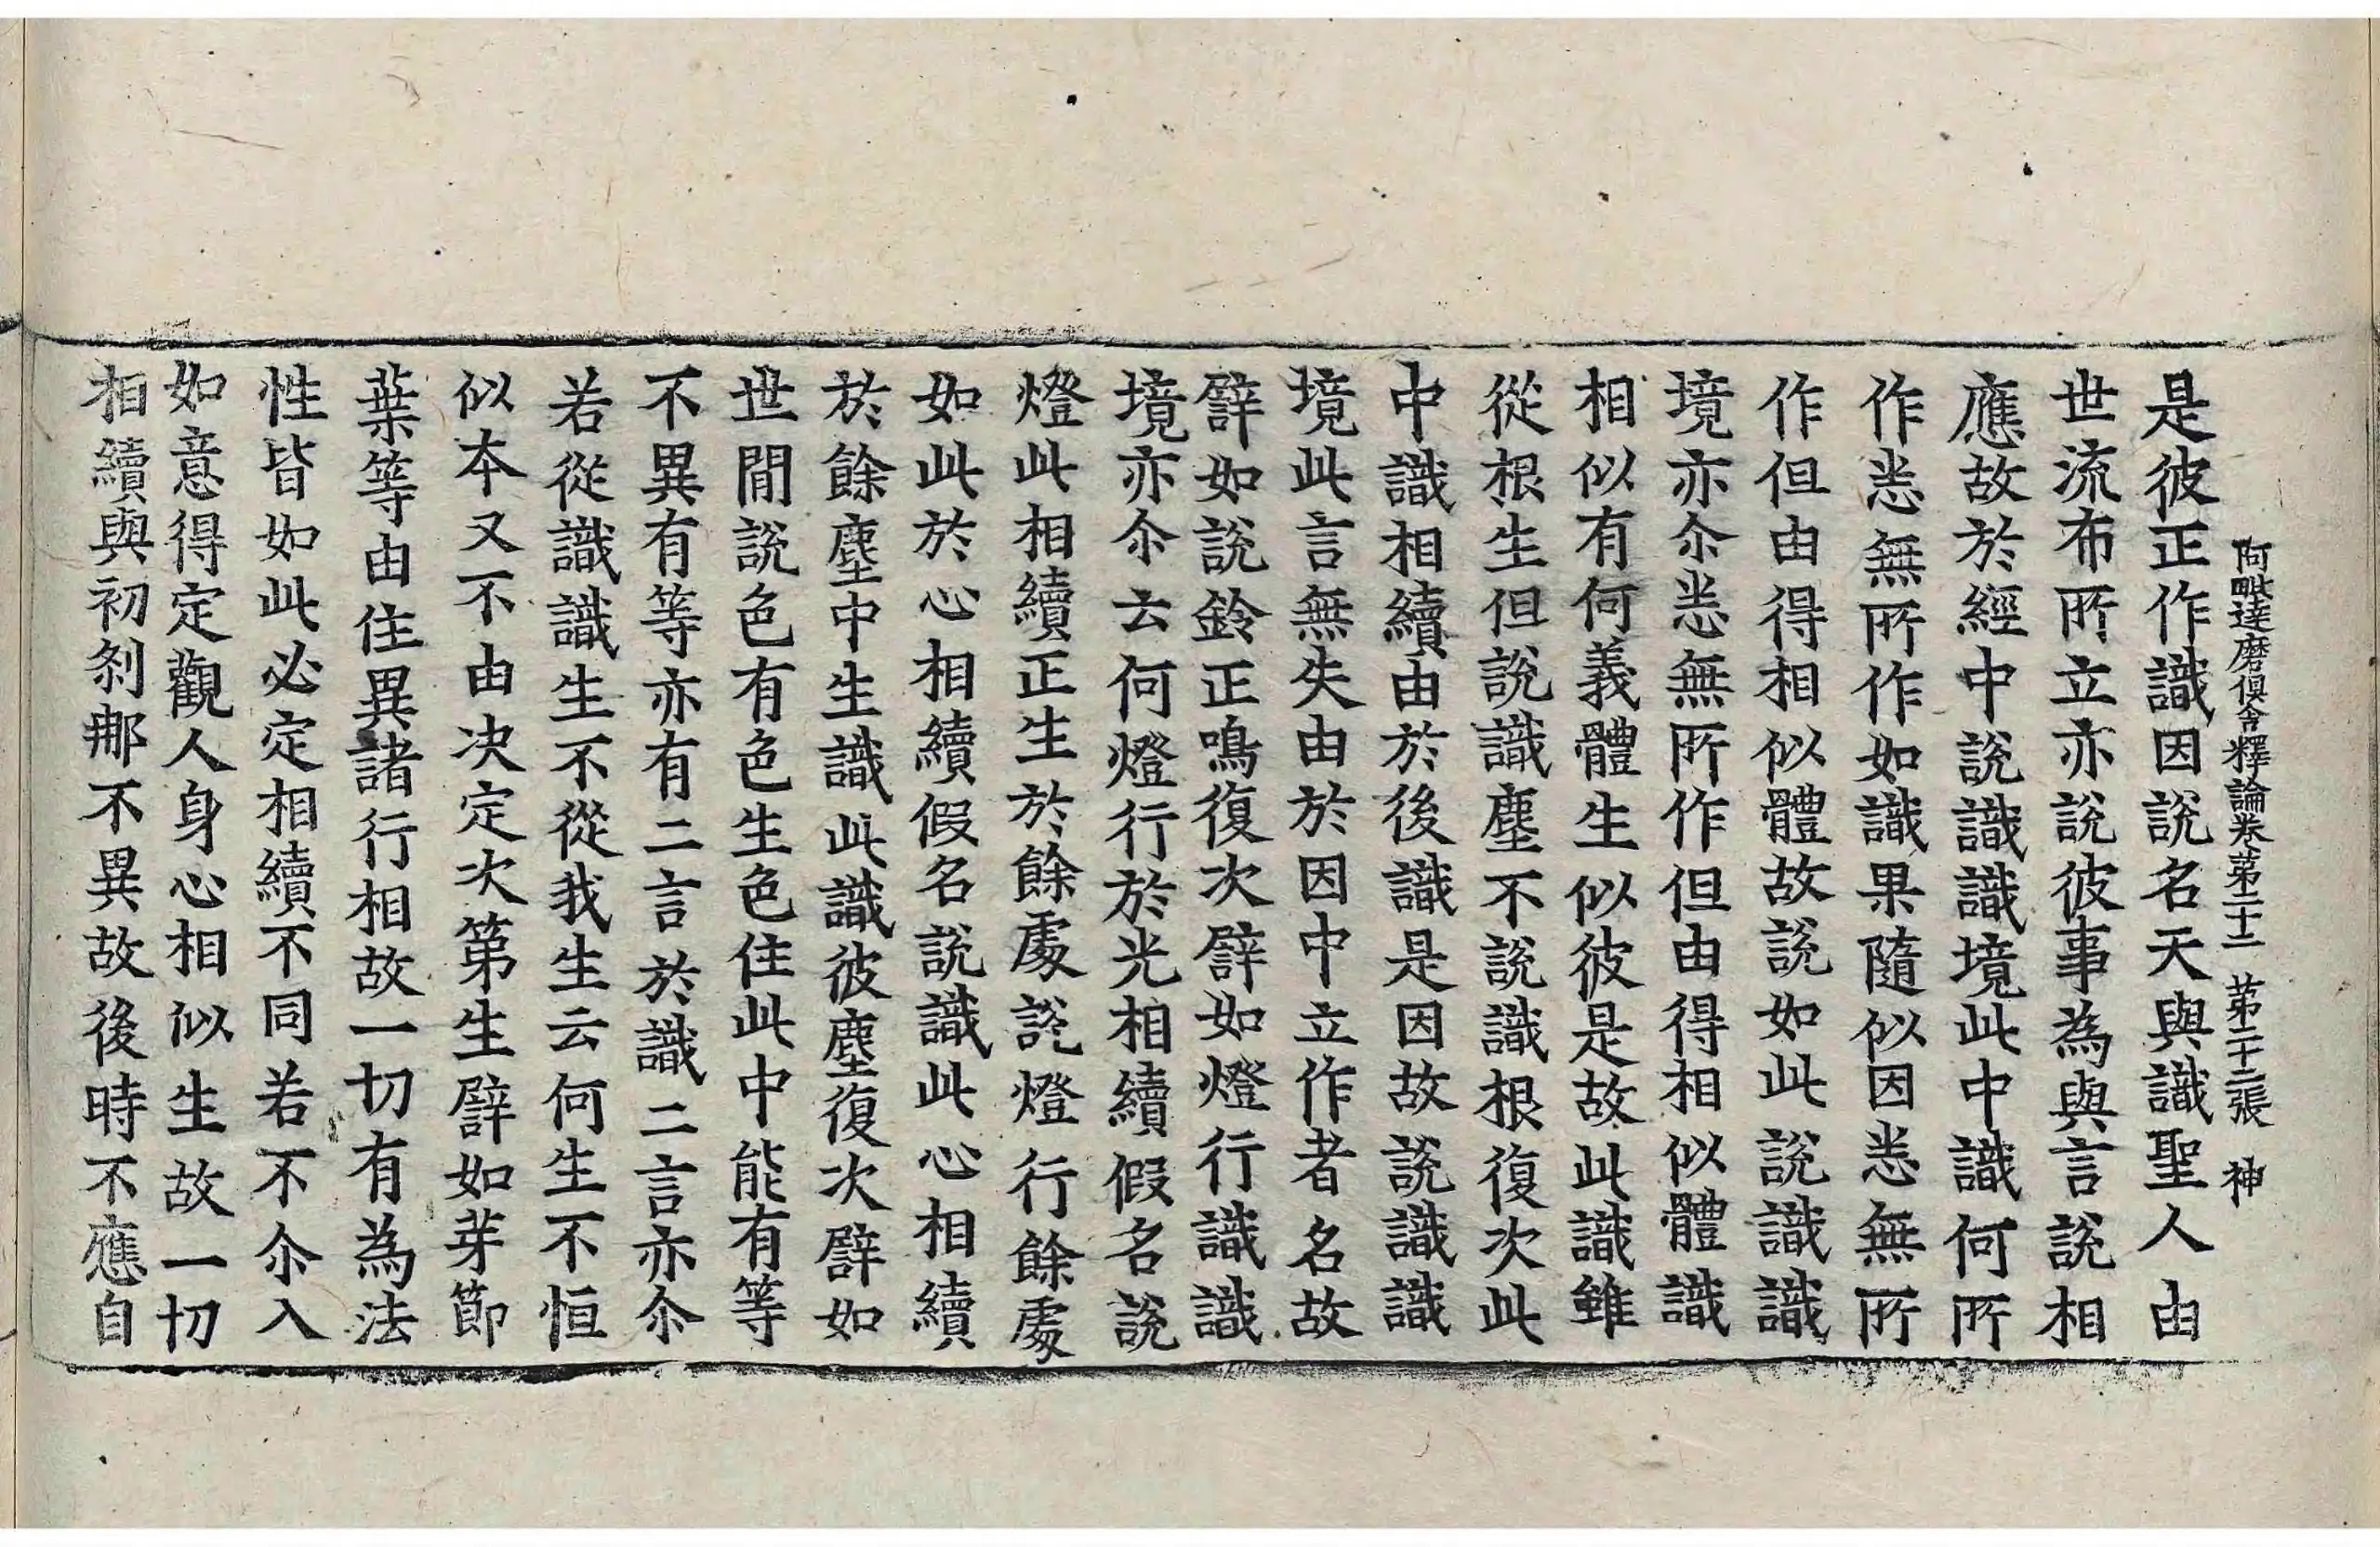 阿毗達磨俱舍釋論卷第二十二 第二十二張 神
是彼正作識因說名天與識聖人由
世流布所立亦說彼事為與言說相
應故於經中說識識境此中識何所
作恙無所作如識果隨似因恙無所
作但由得相似體故說如此說識識
境亦尒恙無所作但由得相似體識
相似有何義體生似彼是故此識雖
從根生但說識塵不說識根復次此
中識相續由於後識是因故說識識
境此言無失由於因中立作者名故
譬如說鈴正鳴復次譬如燈行識識
境亦尒云何燈行於光相續假名說
燈此相續正生於餘處說燈行餘處
如此於心相續假名說識此心相續
於餘塵中生識此識彼塵復次譬如
世間說色有色生色住此中能有等
不異有等亦有二言於識二言亦尒
若從識識生不從我生云何生不恒
似本又不由决定次第生譬如芽節
葉等由住異諸行相故一切有為法
性皆如此必定相續不同若不尒入
如意得定觀人身心相似生故一切
相續與初刹那不異故後時不應自